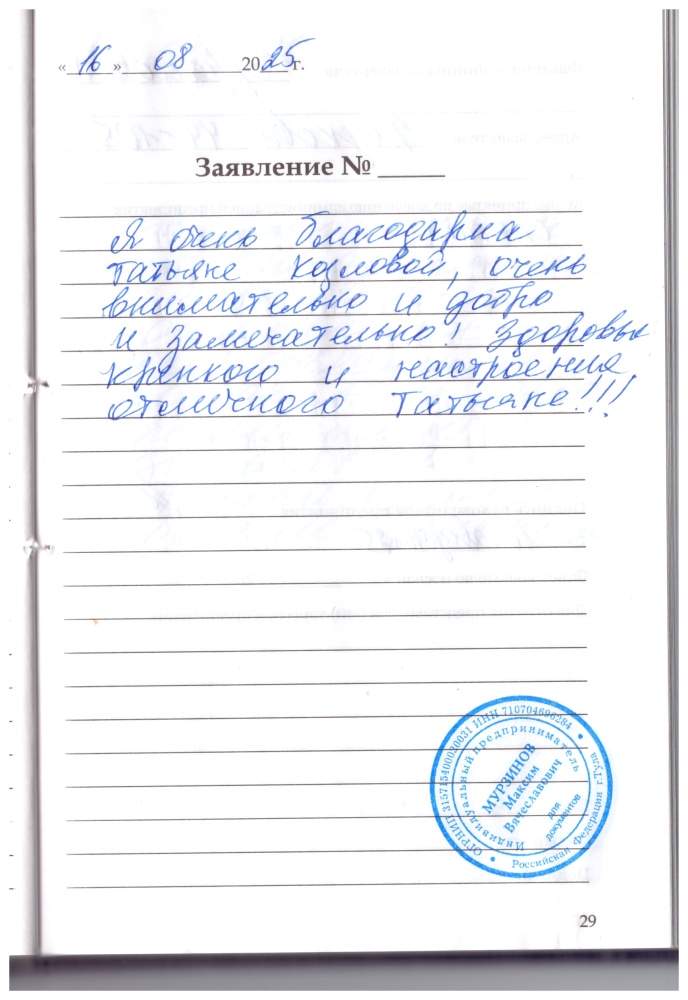 «16» 08 2025 г.
Заявление № _____
Я очень благодарна
Татьяне Козловой, очень
внимательно и добро
и замечательно! Здоровья
крепкого и настроения
отличного Татьяне!!!
ОГРНИП 315715400020031 ИНН 710704696284
Российская Федерация г.Тула
Индивидуальный предприниматель
МУРЗИНОВ
Максим
Вячеславович
для
документов
29